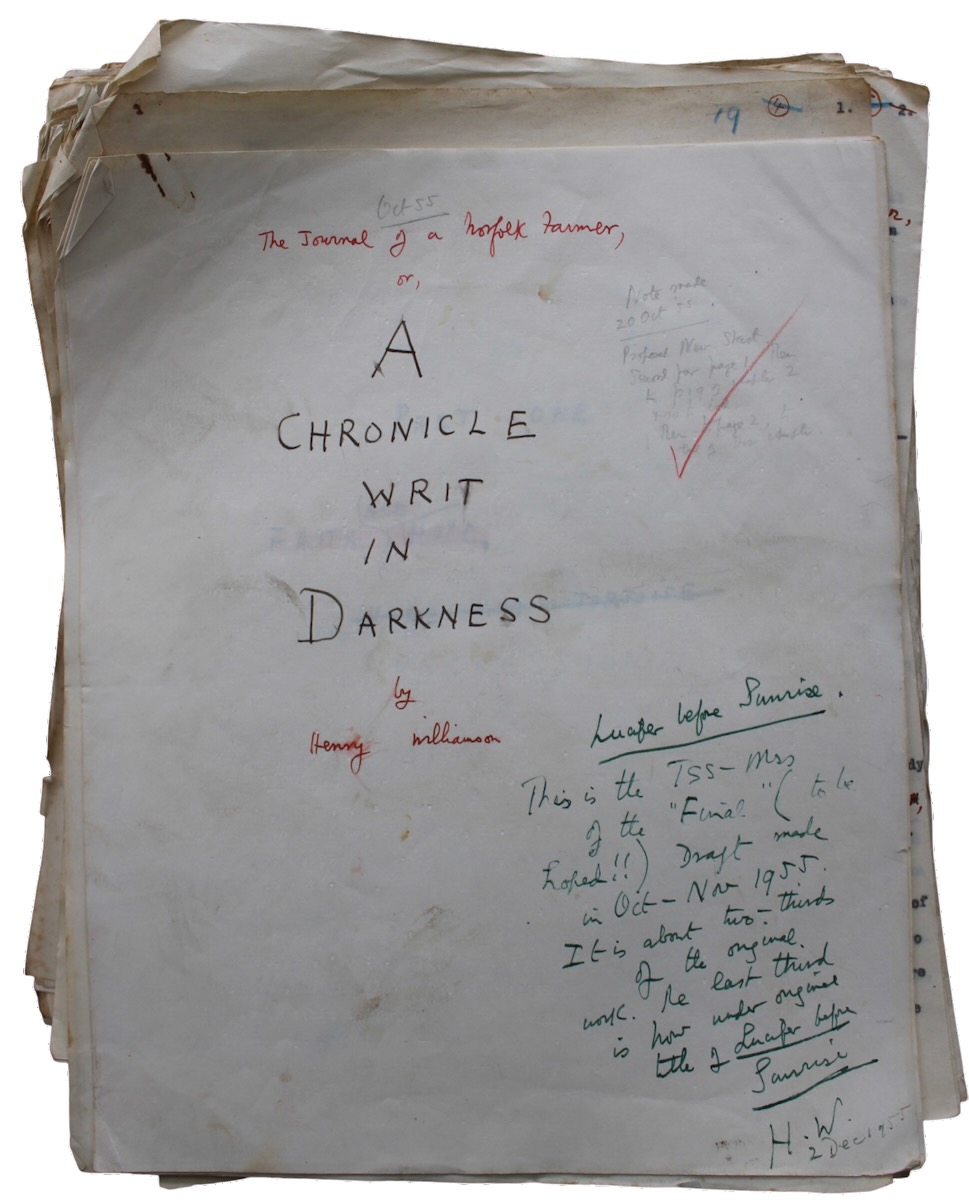 19 4 1. 2.
Oct 55
The Journal of a Norfolk Farmer,
or,
A
CHRONICLE
WRIT
IN
DARKNESS
by
Henry Williamson
Note made
20 Oct 55.
Proposed New Start
page 1
page 2
Lucifer before Sunrise.
This is the TSS-Mss
of the "Final" (to be
hoped!!) Draft made
in Oct-Nov 1955.
It is about two-thirds
of the original
work. The last third
is now under original
title of Lucifer before
Sunrise
H.W.
2 Dec 1955